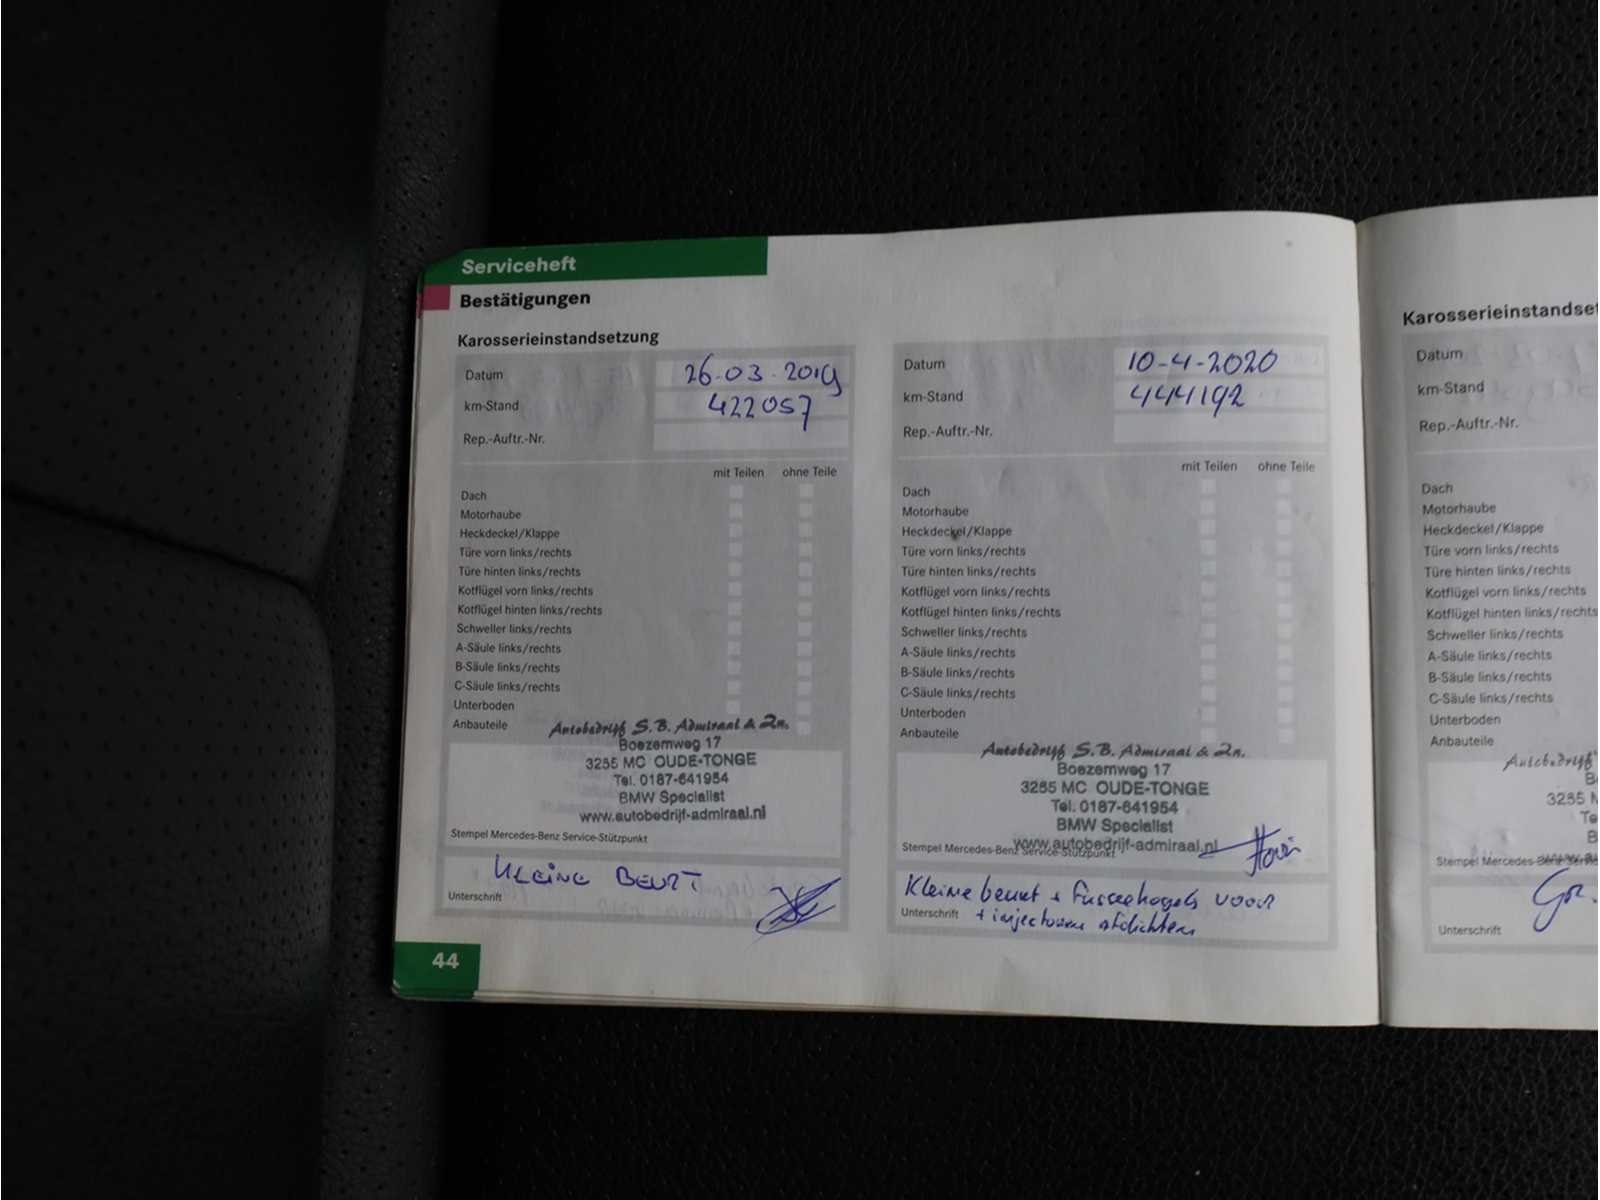 Serviceheft
Bestätigungen
Karosserieinstandsetzung
Datum 26-03-2019
km-Stand 422057
Rep.-Auftr.-Nr.
mit Teilen ohne Teile
Dach
Motorhaube
Heckdeckel/Klappe
Türe vorn links/rechts
Türe hinten links/rechts
Kotflügel vorn links/rechts
Kotflügel hinten links/rechts
Schweller links/rechts
A-Säule links/rechts
B-Säule links/rechts
C-Säule links/rechts
Unterboden
Anbauteile
Autobedrijf S.B. Admiraal & Zn.
Boezemweg 17
3255 MC OUDE-TONGE
Tel. 0187-641954
BMW Specialist
www.autobedrijf-admiraal.nl
Stempel Mercedes-Benz Service-Stützpunkt
KLEINE BEURT
Unterschrift
44
Datum 10-4-2020
km-Stand 444192
Rep.-Auftr.-Nr.
mit Teilen ohne Teile
Dach
Motorhaube
Heckdeckel/Klappe
Türe vorn links/rechts
Türe hinten links/rechts
Kotflügel vorn links/rechts
Kotflügel hinten links/rechts
Schweller links/rechts
A-Säule links/rechts
B-Säule links/rechts
C-Säule links/rechts
Unterboden
Anbauteile
Autobedrijf S.B. Admiraal & Zn.
Boezemweg 17
3255 MC OUDE-TONGE
Tel. 0187-641954
BMW Specialist
www.autobedrijf-admiraal.nl
Stempel Mercedes-Benz Service-Stützpunkt
Kleine beurt + Fuseekogels voor
Unterschrift + injectoren afdichten
Karosserieinstandse
Datum
km-Stand
Rep.-Auftr.-Nr.
Dach
Motorhaube
Heckdeckel/Klappe
Türe vorn links/rechts
Türe hinten links/rechts
Kotflügel vorn links/rechts
Kotflügel hinten links/rechts
Schweller links/rechts
A-Säule links/rechts
B-Säule links/rechts
C-Säule links/rechts
Unterboden
Anbauteile
Autobedrijf
3255
Stempel Mercedes-Benz
Unterschrift